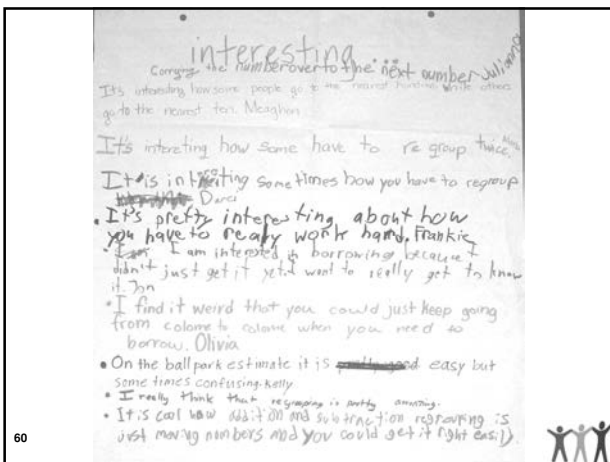 interesting
Carrying the number over to the next number Julianna
It's interesting how some people go to the nearest hundred while others
go to the nearest ten. Meaghan
It's intereting how some have to re group twice.
It is intresting some times how you have to regroup
Darci
• It's pretty interesting about how
you have to really work hard. Frankie
• I am interested in borrowing because I
didn't just get it yet. I want to really get to know
it. Jon
• I find it weird that you could just keep going
from colome to colome when you need to
borrow. Olivia
• On the ball park estimate it is easy but
some times confusing. Kelly
• I really think that regrouping is pretty amazing.
• It is cool how addition and subtraction regrouping is
just moving numbers and you could get it right easily
60